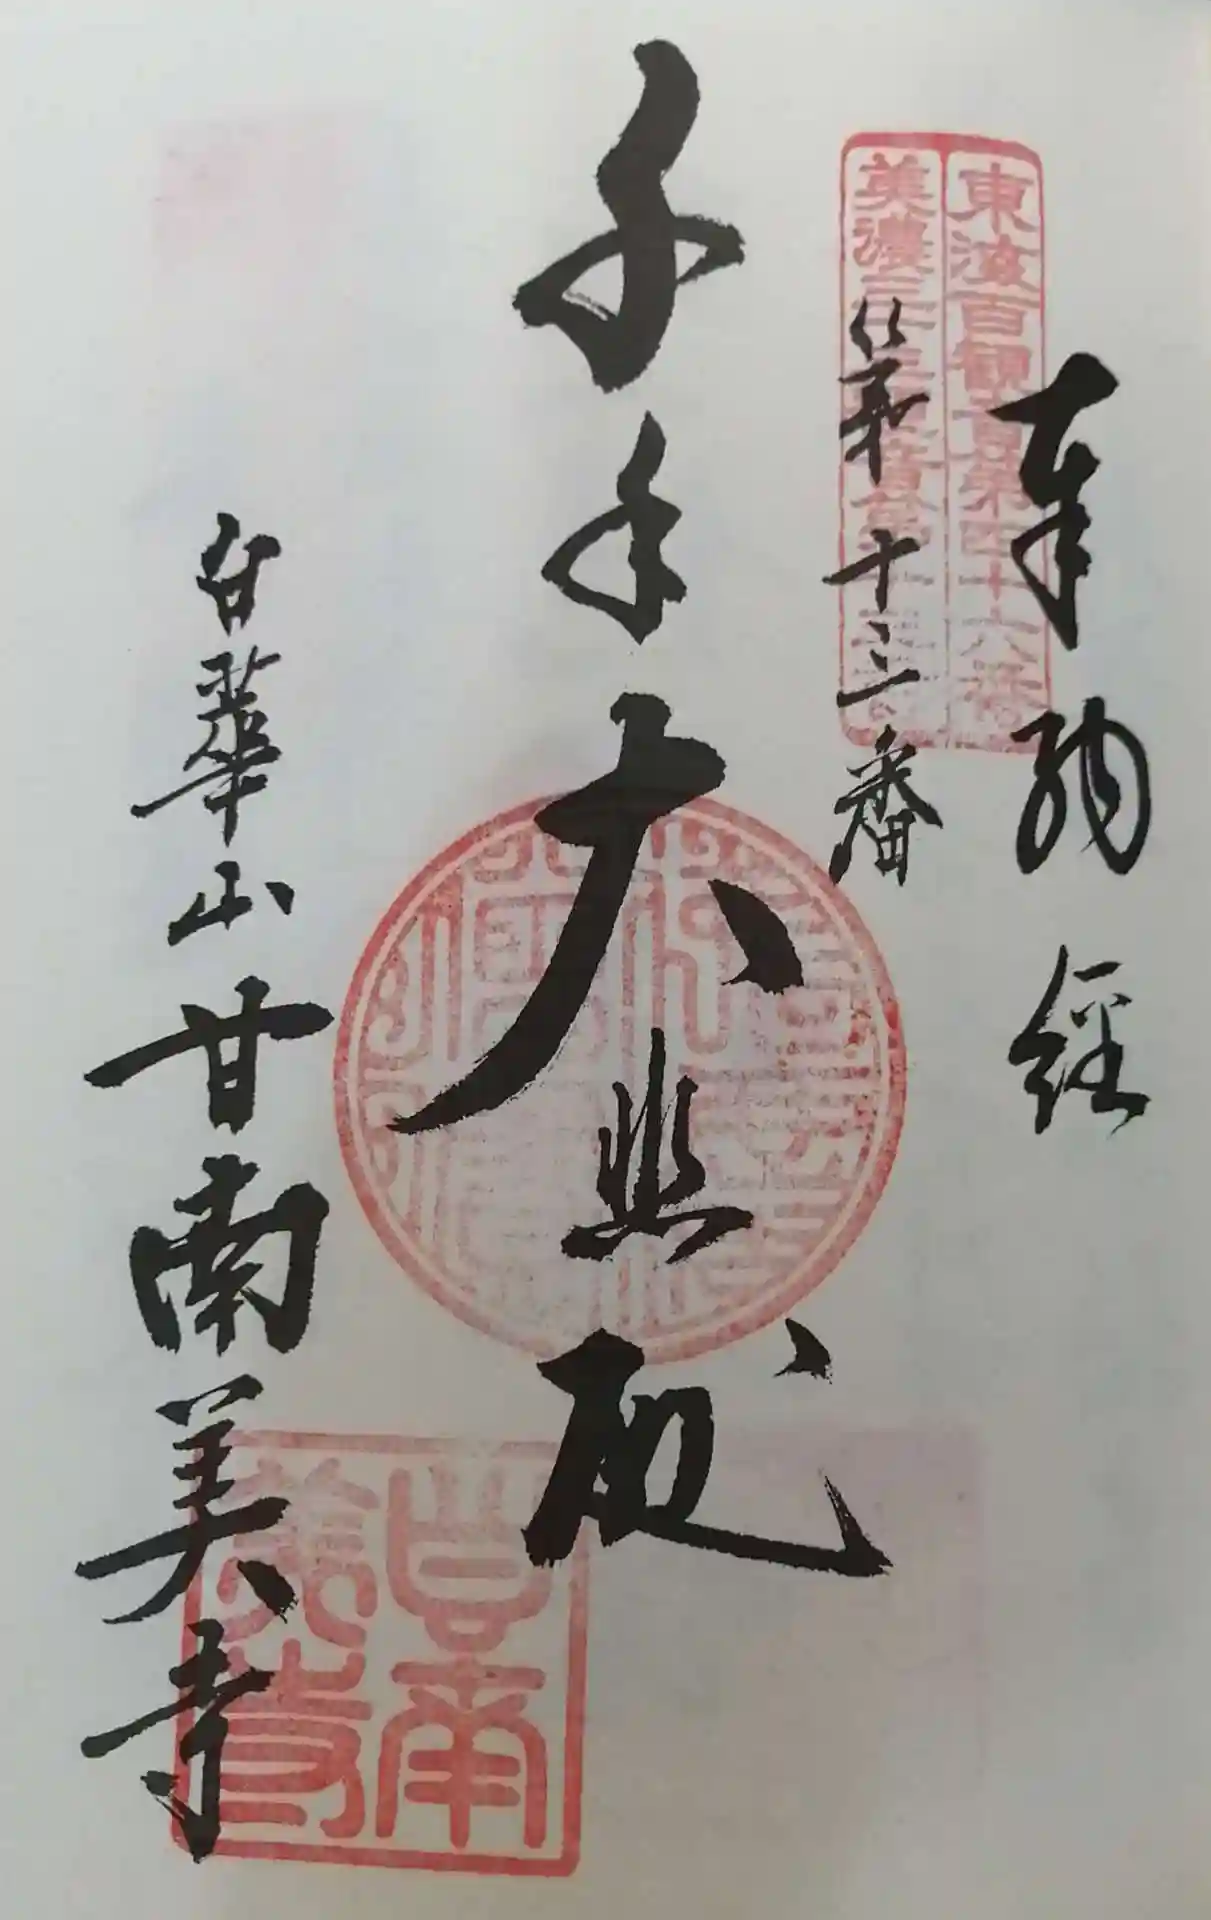 奉納経
東海百観音第四十六番
美濃三十三観音第十三番
第十三番
千手大悲殿
白華山甘南美寺
甘南
美寺